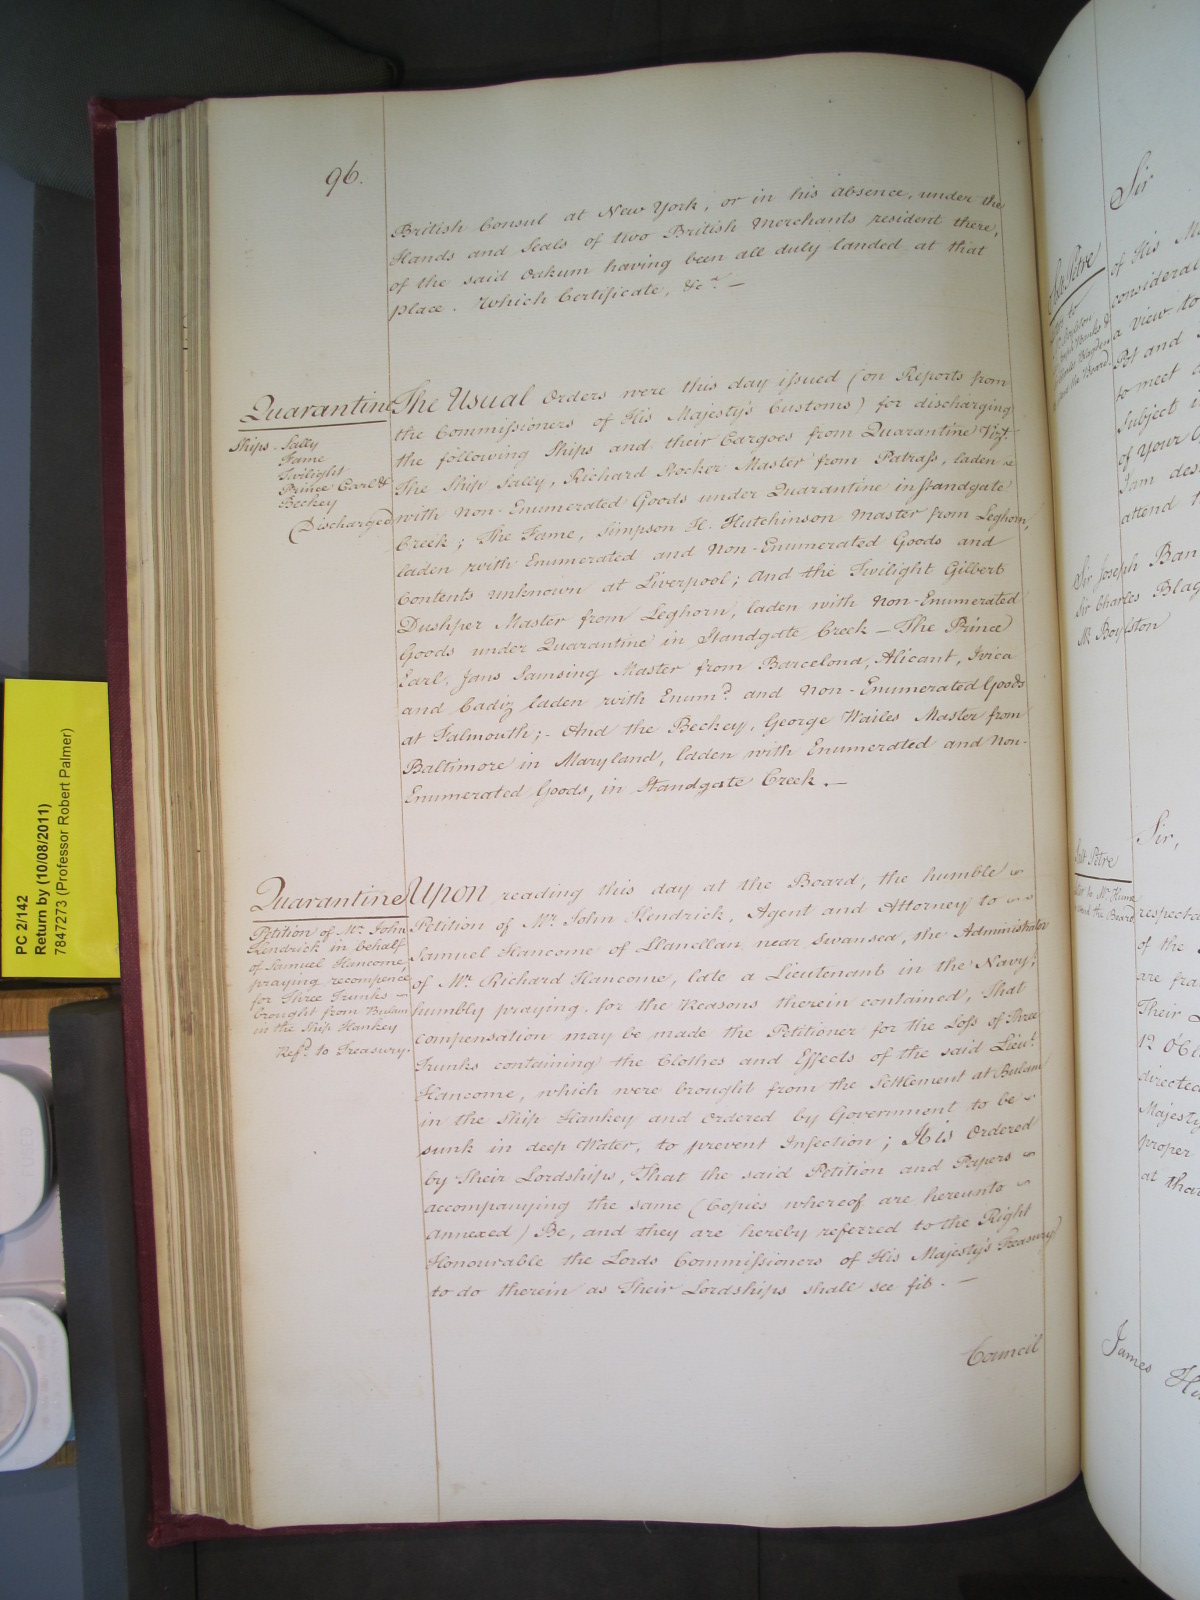 96.
British Consul at New York, or in his absence, under the
Hands and Seals of two British Merchants resident there,
of the said Oakum having been all duly landed at that
place. Which Certificate, &c.a —
Quarantine
Ships - Sally
Fame
Twilight
Prince Earl &
Beckey
(Discharged
The Usual Orders were this day issued (on Reports from
the Commissioners of His Majesty's Customs) for discharging
the following Ships and their Cargoes from Quarantine Vizt.
The Ship Sally, Richard Rocker Master from Patrass, laden
with Non-Enumerated Goods under Quarantine in Standgate
Creek; The Fame, Simpson H. Hutchinson Master from Leghorn,
laden with Enumerated and Non-Enumerated Goods and
Contents unknown at Liverpool; And the Twilight Gilbert
Dushper Master from Leghorn, laden with Non-Enumerated
Goods under Quarantine in Standgate Creek — The Prince
Earl, Jans Samsing Master from Barcelona, Alicant, Ivica
and Cadiz laden with Enum.d and Non-Enumerated Goods
at Falmouth; - And the Beckey, George Wailes Master from
Baltimore in Maryland, laden with Enumerated and Non-
Enumerated Goods, in Standgate Creek. —
Quarantine
Petition of Mr. John
Kendrick in behalf
of Samuel Hancome,
praying recompence
for Three Trunks
brought from Bulam
in the Ship Hankey
Ref.d to Treasury.
Upon reading this day at the Board, the humble
Petition of Mr. John Kendrick, Agent and Attorney to
Samuel Hancome of Llanellan near Swansea, the Administrator
of Mr. Richard Hancome, late a Lieutenant in the Navy,
humbly praying, for the Reasons therein contained, That
compensation may be made the Petitioner for the Loss of Three
Trunks containing the Clothes and Effects of the said Lieut.
Hancome, which were brought from the Settlement at Bulam
in the Ship Hankey and Ordered by Government to be
sunk in deep Water, to prevent Infection; It is Ordered
by Their Lordships, That the said Petition and Papers
accompanying the same (Copies whereof are hereunto
Annexed) Be, and they are hereby referred to the Right
Honourable the Lords Commissioners of His Majesty's Treasury
to do therein as Their Lordships shall see fit. —
Council
PC 2/142
Return by (10/08/2011)
7847273 (Professor Robert Palmer)
Sir
of His
considera
a view to
and
to meet
Subject
of your
I am des
attend
Sir Joseph Ban
Sir Charles Blag
Mr. Boylston
Sir,
Salt Petre
respect
of the
are
Their
12 O'Cl
directed
Majesty
proper
at tha
James